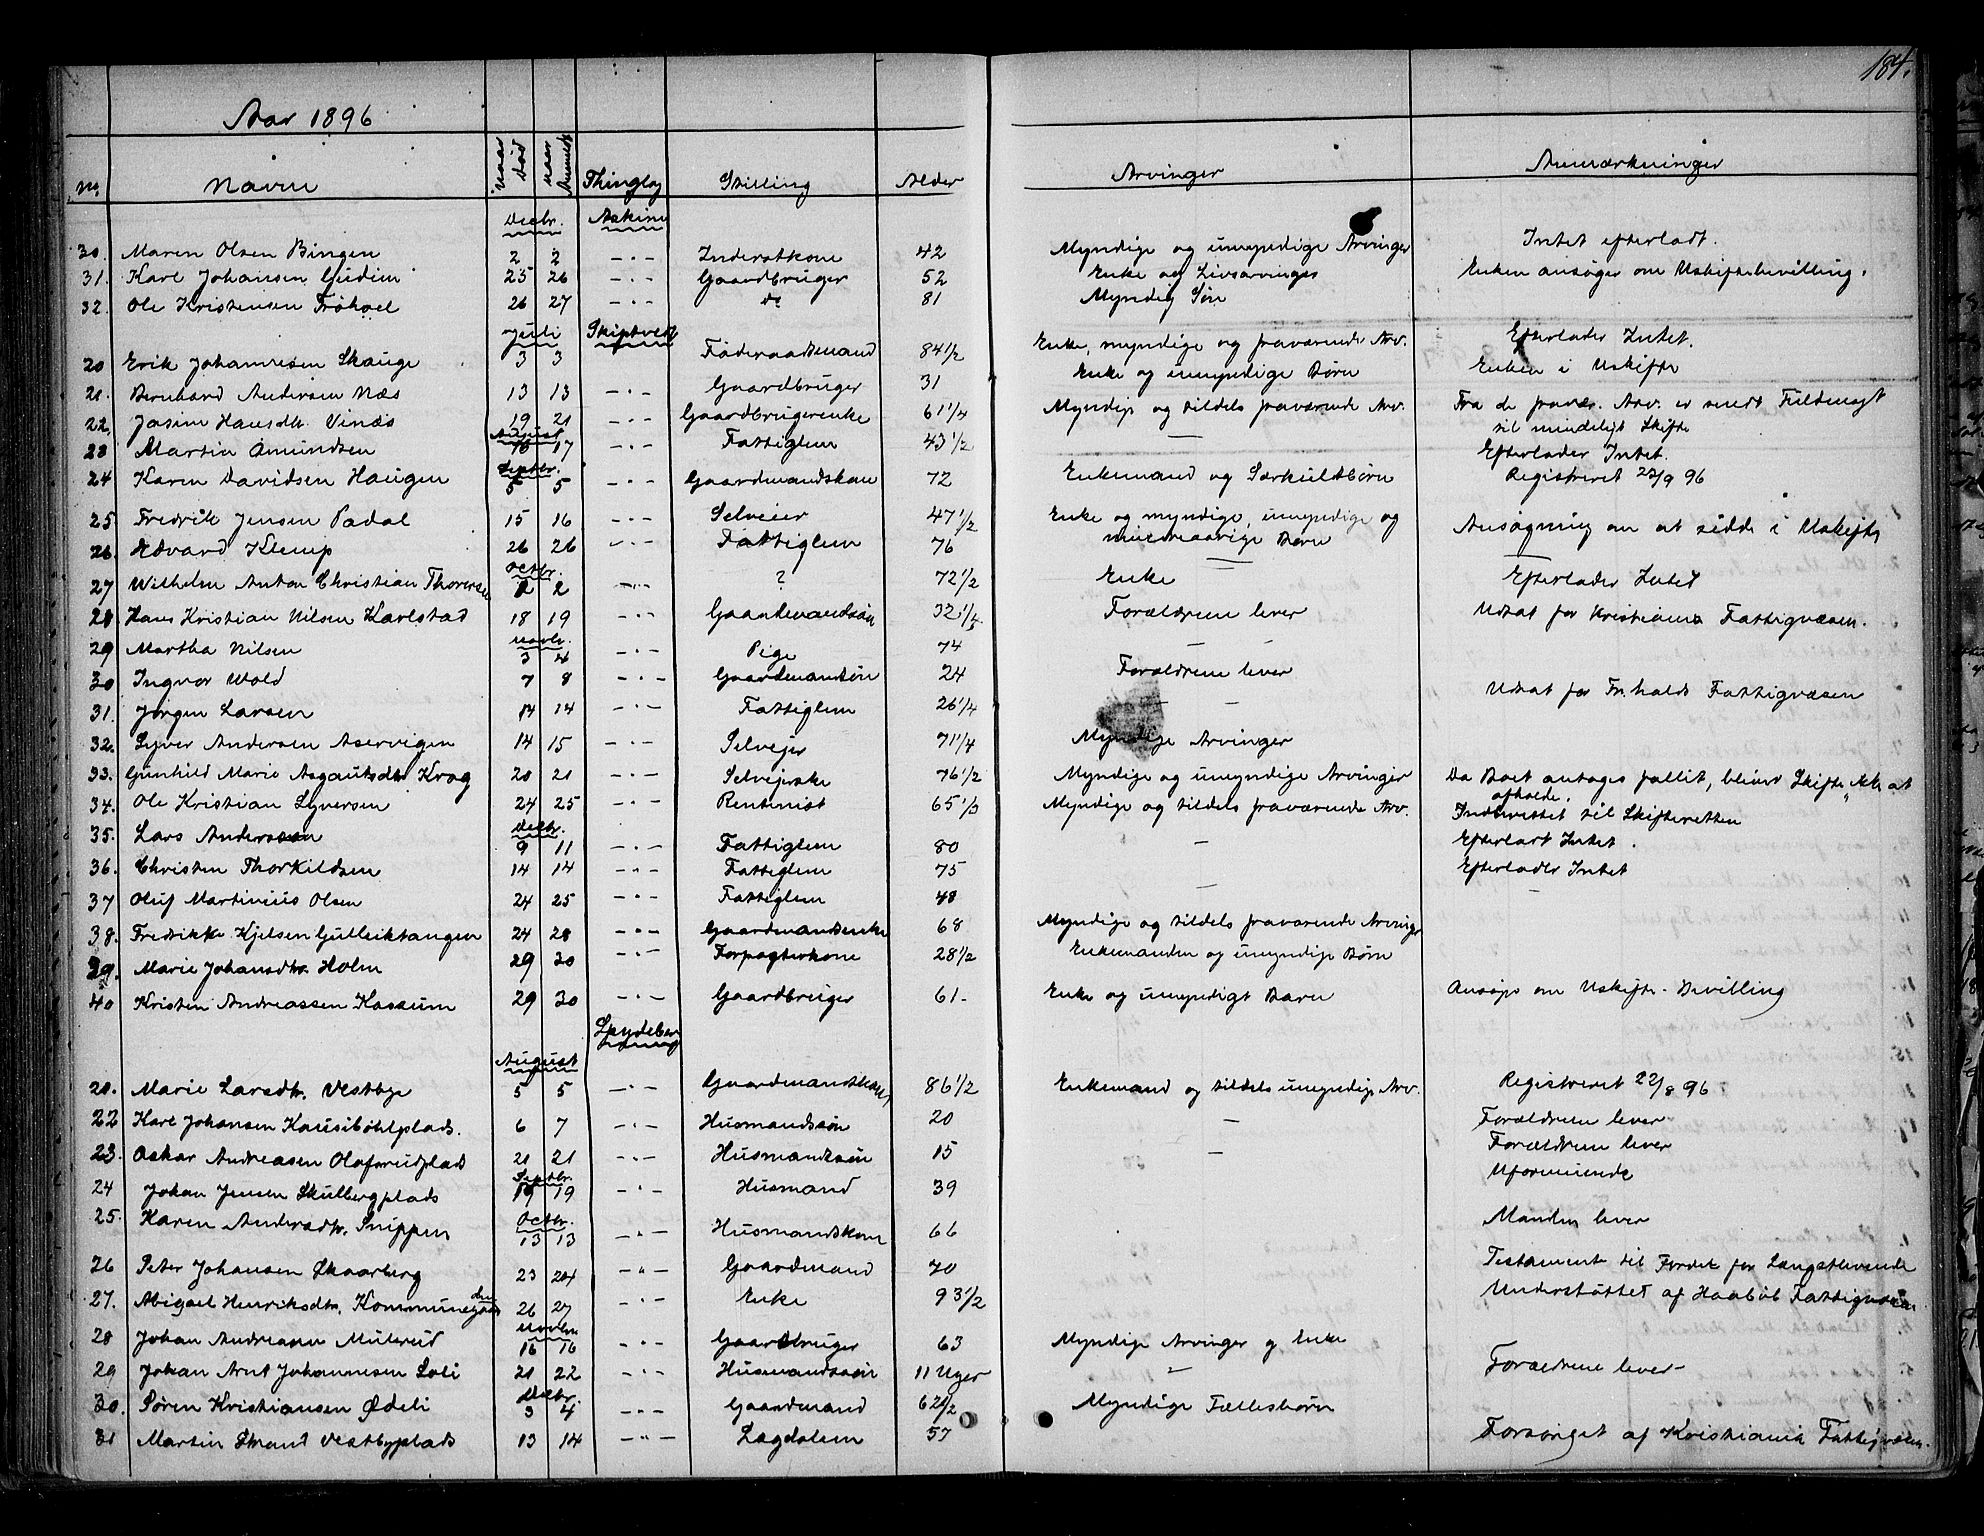 184.
Aar 1896
No. Navn naar død naar Anmeldt Thinglag Stilling Alder Arvinger Anmærkninger
Decbr. Askim
30. Maren Olsen Bingen 2 2 - " - Inderstkone 42 Myndige og umyndige Arvinger Intet efterladt.
31. Karl Johansen Gudim 25 26 - " - Gaardbruger 52 Enke og Livsarvinger Enken ansøger om Uskiftebevilling.
32. Ole Kristensen Frøhoel 26 27 - " - do 81 Myndig Søn
Juli Skiptvedt
20 Erik Johannesen Skauge 3 3 Føderaadsmand 84 1/2 Enke, myndige og fraværende Arv. Efterlader Intet.
21. Bernhard Andersen Næs 13 13 - " - Gaardbruger 31 Enke og umyndige Børn Enken i Uskifte
22. Josine Hansdtr. Vinæs 19 21 - " - Gaardbrugerenke 61 1/4 Myndige og tildels fraværende Arv. Fra de fravær. Arv. er sendt Fuldmagt
til mindeligt Skifte
August
23 Martin Amundsen 16 17 - " - Fattiglem 43 1/2 — Efterlader Intet.
Septbr.
24 Karen Davidsen Haugen 5 5 - " - Gaardmandskone 72 Enkemand og Særkuldbørn Registreret 22/9 96
25. Fredrik Jensen Padal 15 16 - " - Selveier 47 1/2 Enke og myndige, umyndige og
mindreaarige Børn Ansøgning om at sidde i Uskifte
26. Edvard Klemp 26 26 - " - Fattiglem 76 —
Octbr.
27 Wilhelm Anton Christian Thoresen 2 2 - " - ? 72 1/2 Enke Efterlader Intet
28 Hans Kristian Nilsen Karlstad 18 19 - " - Gaardmandssøn 32 1/4 Forældrene lever Udsat for Kristiania Fattigvæsen.
Novbr.
29 Martha Nilsen 3 4 - " - Pige 74 —
30 Ingvor Wold 7 8 - " - Gaardmandsøn 24 Forældrene lever
31. Jørgen Larsen 14 14 - " - Fattiglem 26 1/4 — Udsat for Fr.halds Fattigvæsen
32. Syver Andersen Aservigen 14 15 - " - Selvejer 71 1/4 Myndige Arvinger
33. Gunhild Marie Asgautsdtr. Krog 20 21 - " - Selvejerske 76 1/2 Myndige og umyndige Arvinger Da Boet antages fallit, bliver Skifte ikke at
afholde.
34. Ole Kristian Syversen 24 25 - " - Rentenist 65 1/3 Myndige og tildels fraværende Arv. Indberettet til Skifteretten
Decbr.
35. Lars Anderssen 9 11 - " - Fattiglem 80 — Efterladt Intet.
36. Christen Thorkildsen 14 14 - " - Fattiglem 75 Efterlader Intet
37 Oluf Martinius Olsen 24 25 - " - Fattiglem 48 —
38. Fredrikke Kjelsen Gulleiktangen 24 28 - " - Gaardmandsenke 68 Myndige og tildels fraværende Arvinger
39. Marie Johansdtr. Holm 29 30 - " - Forpagterkone 28 1/2 Enkemanden og umyndige Børn
40 Kristen Andreassen Kaskum 29 30 - " - Gaardbruger 61. Enke og umyndigt Barn Ansøgt om Uskifte-Bevilling
August
20. Marie Larsdtr. Vestbye 5 5 - " - Gaardmandskone, 86 1/2 Enkemand og tildels umyndige Arv. Registreret 22/8 96
22 Karl Johansen Kausibøhlplads. 6 7 - " - Husmandssøn 20 — Forældrene lever
23. Oskar Andreasen Olafsrudplads 21 21 - " - Husmandssøn 15 — Forældrene lever
Septbr.
24 Johan Jensen Skulbergplads 19 19 - " - Husmand 39 Uformuende
Octbr.
25. Karen Andersdtr. Snippen 13 13 - " - Husmandskone 66 Manden lever
26 Peter Johansen Skaarberg 23 24 - " - Gaardmand 70 Testament til Fordel for Længstlevende
27. Abigael Henriksdtr. Kommunegaarden 26 27 - " - Enke 93 1/2 Understøttet af Haabøl Fattigvæsen
Novbr.
28 Johan Andreasen Mulerud 16 16 - " - Gaardbruger 63 Myndige Arvinger og Enke
29 Johan Arnt Johannesen Soli 21 22 - " - Husmandssøn 11 Uger — Forældrene lever
Decbr.
30. Søren Kristiansen Ødeli 3 4 - " - Gaardmand 62 1/2 Myndige Fællesbørn
31 Martin Strand Vestbyplads 13 14 - " - Lægdslem 57 Forsørget af Kristiania Fattigvæsen.